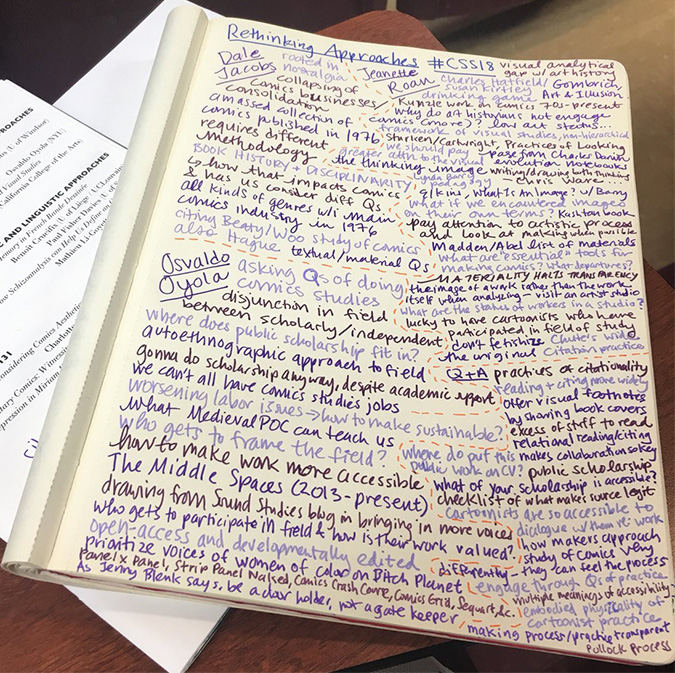 Rethinking Approaches #CSS18
Dale Jacobs
rooted in
nostalgia
collapsing of
comics businesses/
consolidation
amassed collection of
comics published in 1976
requires different
methodology
BOOK HISTORY + DISCIPLINARITY
to how that impacts comics
& has us consider diff Qs
all kinds of genres w/i main
comics industry in 1976
citing Beaty/Woo study of comics
also Hague textual/material Qs
Osvaldo Oyola
asking Qs of doing
comics studies
disjunction in field
between scholarly/independent
where does public scholarship fit in?
autoethnographic approach to field
gonna do scholarship anyway, despite academic support
we can't all have comics studies jobs
worsening labor issues → how to make sustainable?
what Medieval POC can teach us
who gets to frame the field?
how to make work more accessible
The Middle Spaces (2013-present)
drawing from Sound Studies blog in bringing in more voices
who gets to participate in field & how is their work valued?
open-access and developmentally edited
prioritize voices of women of color on Bitch Planet
Panel x Panel, Strip Panel Naked, Comics Crash Course, Comics Grid, Sequart, &c.
As Jenny Blenk says, be a door holder, not a gate keeper
Jeanette Roan
visual analytical
gap w/ art history
Charles Hatfield/
Susan Kirtley
drinking game
Gombrich
Art & Illusion
Kunzle work on comics 70s-present
why do art historians not engage
comics (more)? low cult status..
framework of visual studies, non-hierarchical
Sturken/Cartwright, Practices of Looking
we should pay
greater attn to the visual
page from Charles Darwin's
evolution notebooks
the thinking image
writing/drawing both thinking
Lynda Barry
pedagogy
Chris Ware
Elkins, What Is An Image? w/ Barry
what if we encountered images
on their own terms? Kashtan book
pay attention to artistic process
and look at making when possible
Madden/Abel list of materials
what are "essential" tools for
making comics? what departures?
MATERIALITY HALTS TRANSPARENCY
the image of a work rather than the work
itself when analyzing - visit an artist studio
what are the status of workers in a studio?
lucky to have cartoonists who have
participated in field of study
don't fetishize
the original
Chute's wide
citation practice
Q+A practices of citationality
reading + citing more widely
offer visual footnotes
by sharing book covers
excess of stuff to read
relational reading/citing
makes collaboration so key
where do put this
public work on CV?
public scholarship
what of your scholarship is accessible?
checklist of what makes source legit
cartoonists are so accessible to
dialogue w/ them re: work
how makers approach
study of comics why
differently - they can feel the process
engage through Qs of practice
multiple meanings of accessibility?
embodied physicality of
cartoonist practice
making process/practice transparent
Pollock Process
OACHES
(U. of Windsor)
Osvaldo Oyola (NYU)
Visual Studies
California College of the Arts)
AND LINGUISTIC APPROACHES
131